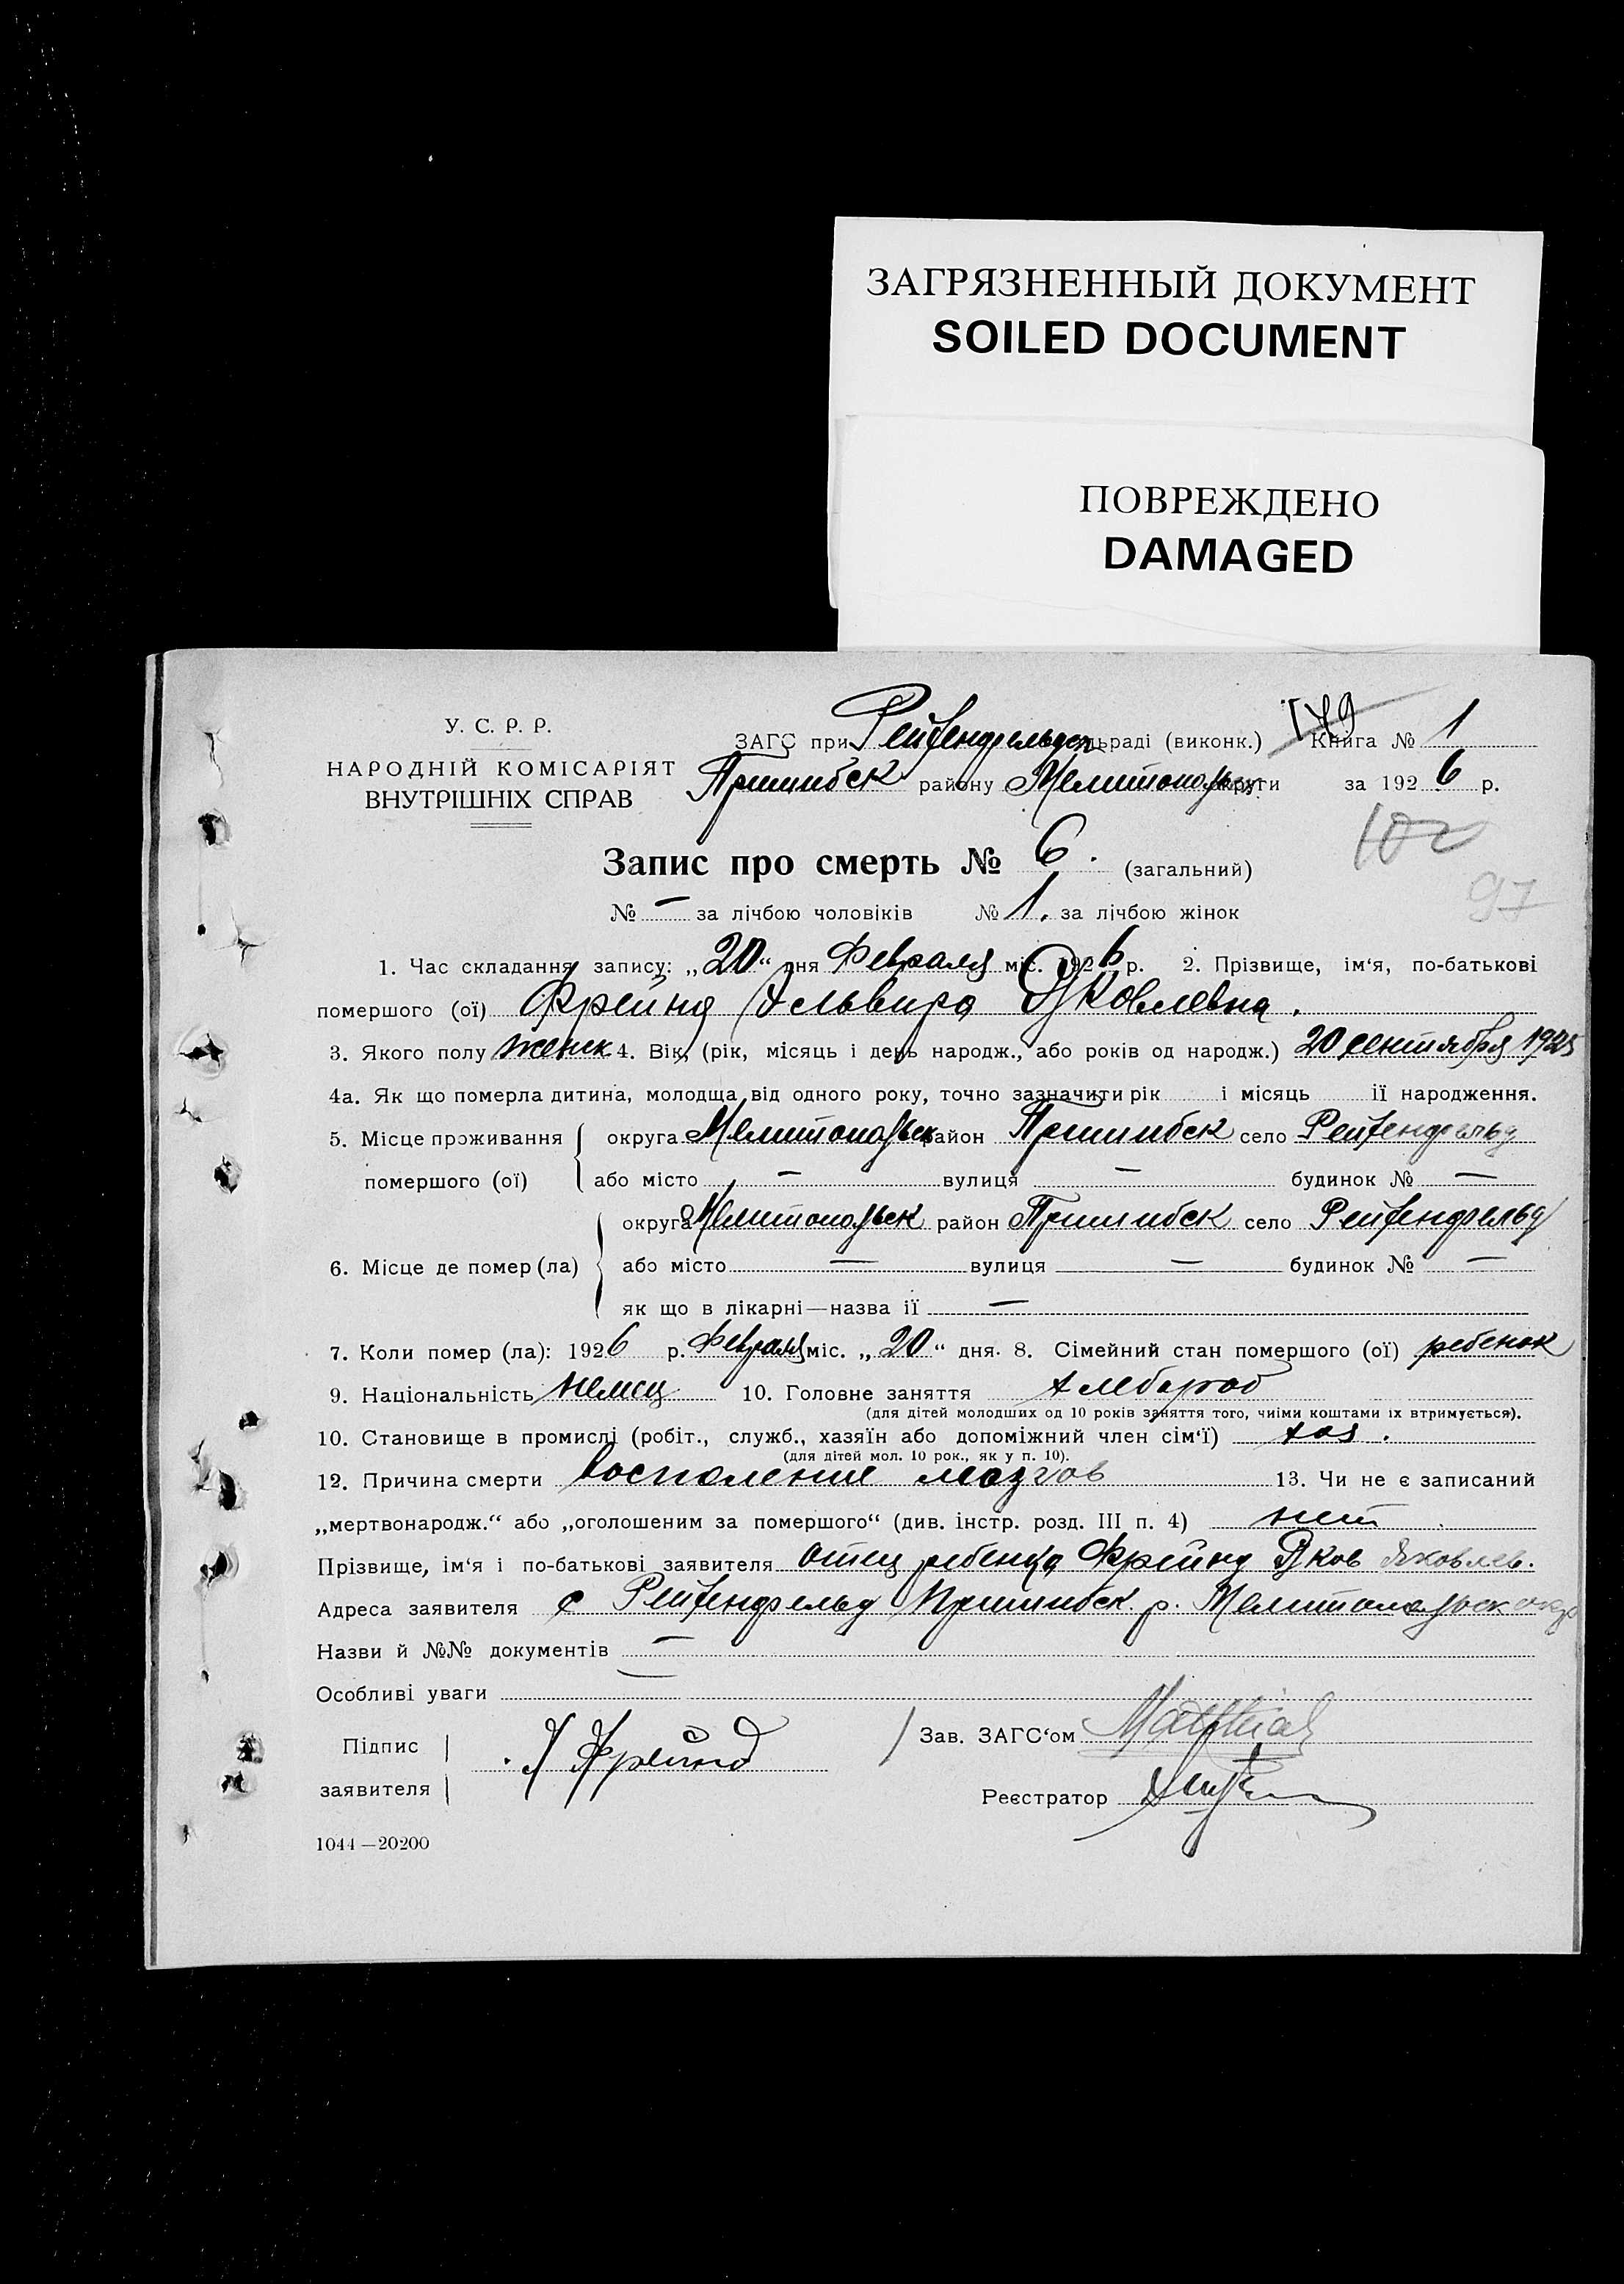 ЗАГРЯЗНЕННЫЙ ДОКУМЕНТ
SOILED DOCUMENT
ПОВРЕЖДЕНО
DAMAGED
У. С. Р. Р.
НАРОДНІЙ КОМІСАРІЯТ
ВНУТРІШНІХ СПРАВ
ЗАГС при Рейхенфельдск раді (виконк.) Книга № 1
Пришибск району Мелитопольск округи за 1926 р.
102
97
Запис про смерть № 6. (загальний)
№ — за лічбою чоловіків № 1. за лічбою жінок
1. Час складання запису: „20“ дня Февраля міс. 1926 р. 2. Прізвище, ім‘я, по-батькові
помершого (ої) Фрейнд Эльвира Яковлевна.
3. Якого полу женск 4. Вік, (рік, місяць і день народж., або років од народж.) 20 сентября 1925
4а. Як що померла дитина, молодща від одного року, точно зазначити рік і місяць її народження.
5. Місце проживання помершого (ої) округа Мелитопольск район Пришибск село Рейхенфельд
або місто — вулиця — будинок № —
6. Місце де помер (ла) округа Мелитопольск район Пришибск село Рейхенфельд
або місто — вулиця — будинок № —
як що в лікарні—назва її —
7. Коли помер (ла): 1926 р. Февраля міс. „20“ дня. 8. Сімейний стан помершого (ої) ребенок
9. Національність немец 10. Головне заняття хлебороб
(для дітей молодших од 10 років заняття того, чиїми коштами їх втримується).
10. Становище в промислі (робіт., служб., хазяїн або допоміжний член сім‘ї) хоз.
(для дітей мол. 10 рок., як у п. 10).
12. Причина смерти воспаление мозгов 13. Чи не є записаний
„мертвонародж.“ або „оголошеним за помершого“ (див. інстр. розд. III п. 4) нет
Прізвище, ім‘я і по-батькові заявителя отец ребенка Фрейнд Яков Яковлев.
Адреса заявителя с Рейхенфельд Пришибск. р. Мелитопольск окр
Назви й №№ документів —
Особливі уваги —
Підпис заявителя Я Фрейнд
Зав. ЗАГС‘ом Matthias
Реєстратор
1044—20200